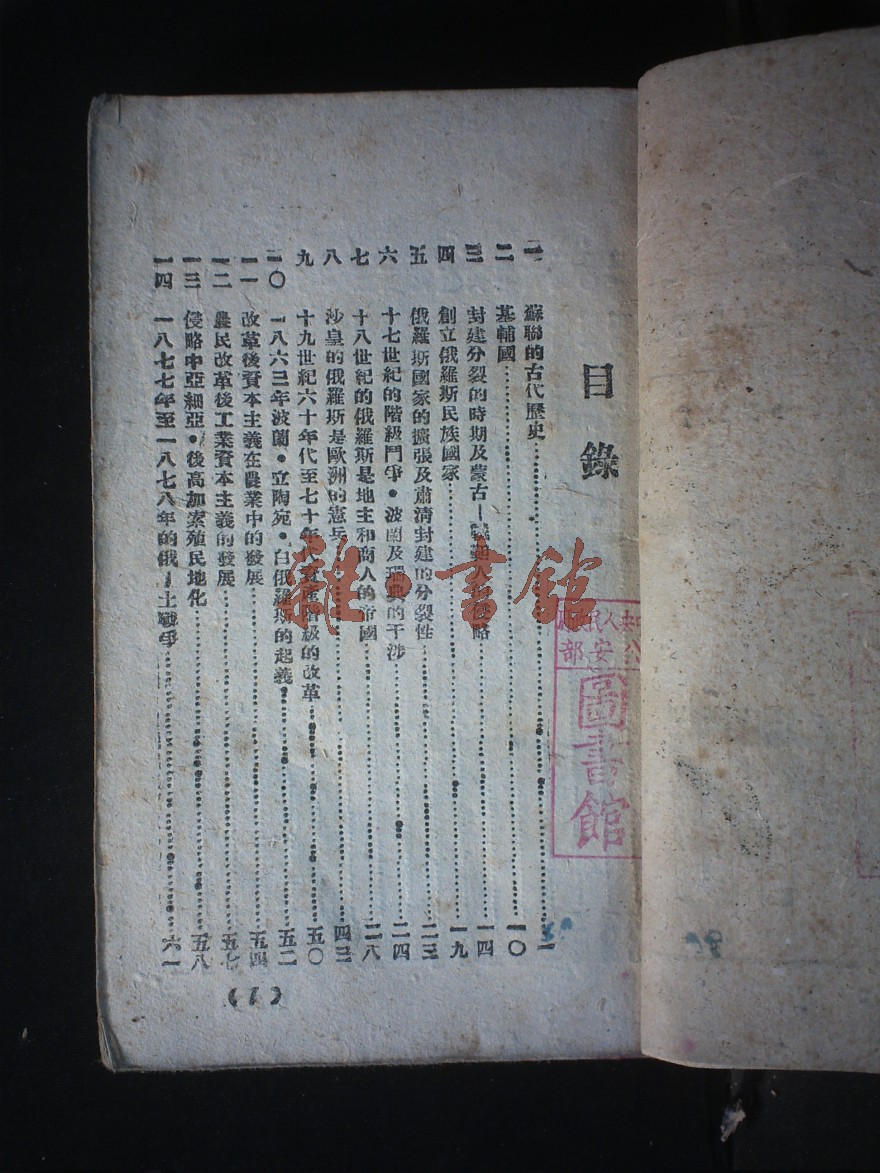 目錄
一 蘇聯的古代歷史 一
二 基輔國 一〇
三 封建分裂的時期及蒙古—韃靼人的侵略 一四
四 創立俄羅斯民族國家 一九
五 俄羅斯國家的擴張及肅清封建的分裂性 二三
六 十七世紀的階級鬥爭・波蘭及瑞典的干涉 二四
七 十八世紀的俄羅斯是地主和商人的帝國 二八
八 沙皇的俄羅斯是歐洲的憲兵 四三
九 十九世紀六十年代至七十年代資產階級的改革 五〇
一〇 一八六三年波蘭・立陶宛・白俄羅斯的起義 五二
一一 改革後資本主義在農業中的發展 五四
一二 農民改革後工業資本主義的發展 五七
一三 侵略中亞細亞・後高加索殖民地化 五八
一四 一八七七年至一八七八年的俄—土戰爭 六一
(1)
公安部
圖書館
書館